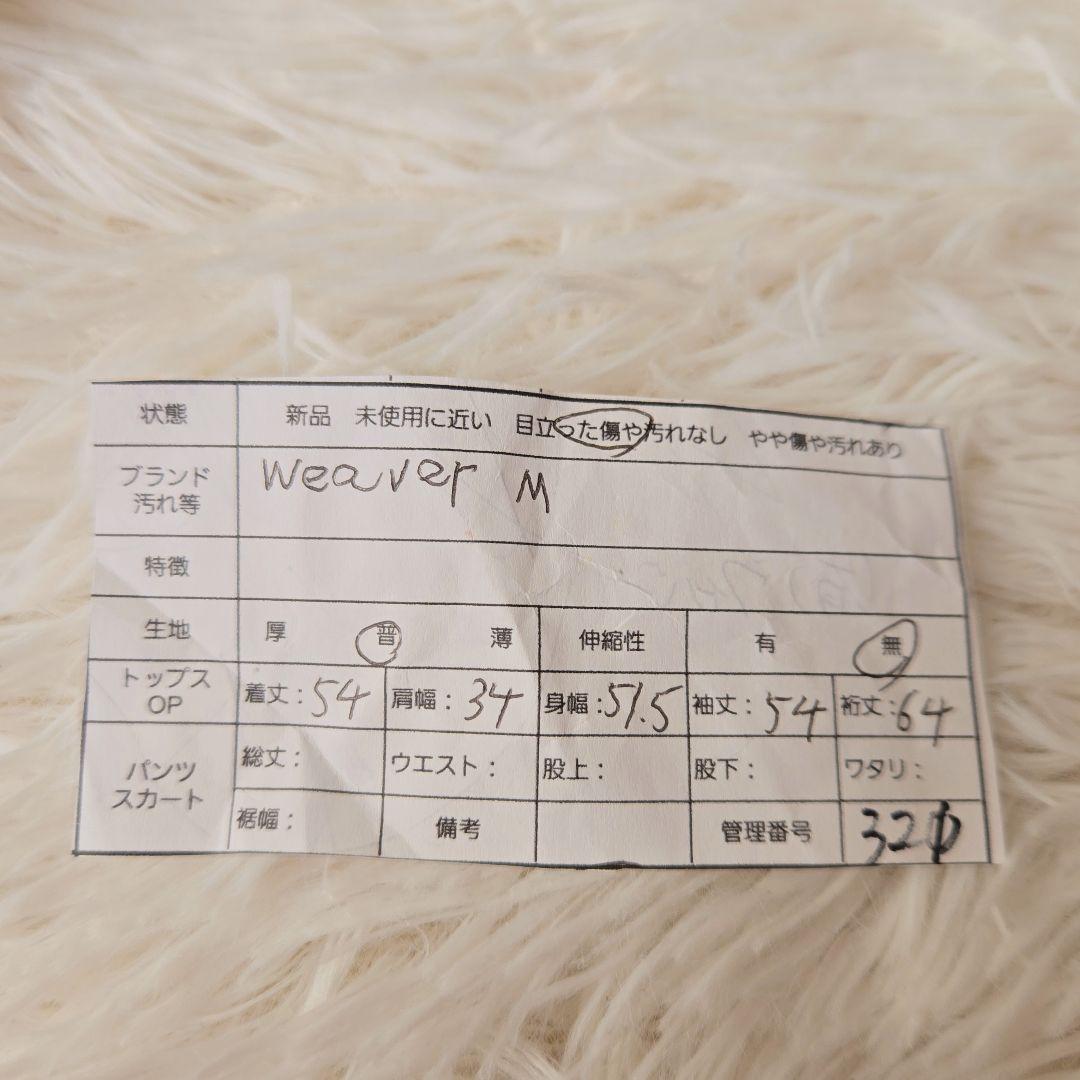 状態 新品 未使用に近い 目立った傷や汚れなし やや傷や汚れあり
ブランド 汚れ等 weaver M
特徴
生地 厚 普 薄 伸縮性 有 無
トップス OP 着丈:54 肩幅:34 身幅:51.5 袖丈:54 裄丈:64
パンツ スカート 総丈: ウエスト: 股上: 股下: ワタリ:
裾幅: 備考 管理番号 320